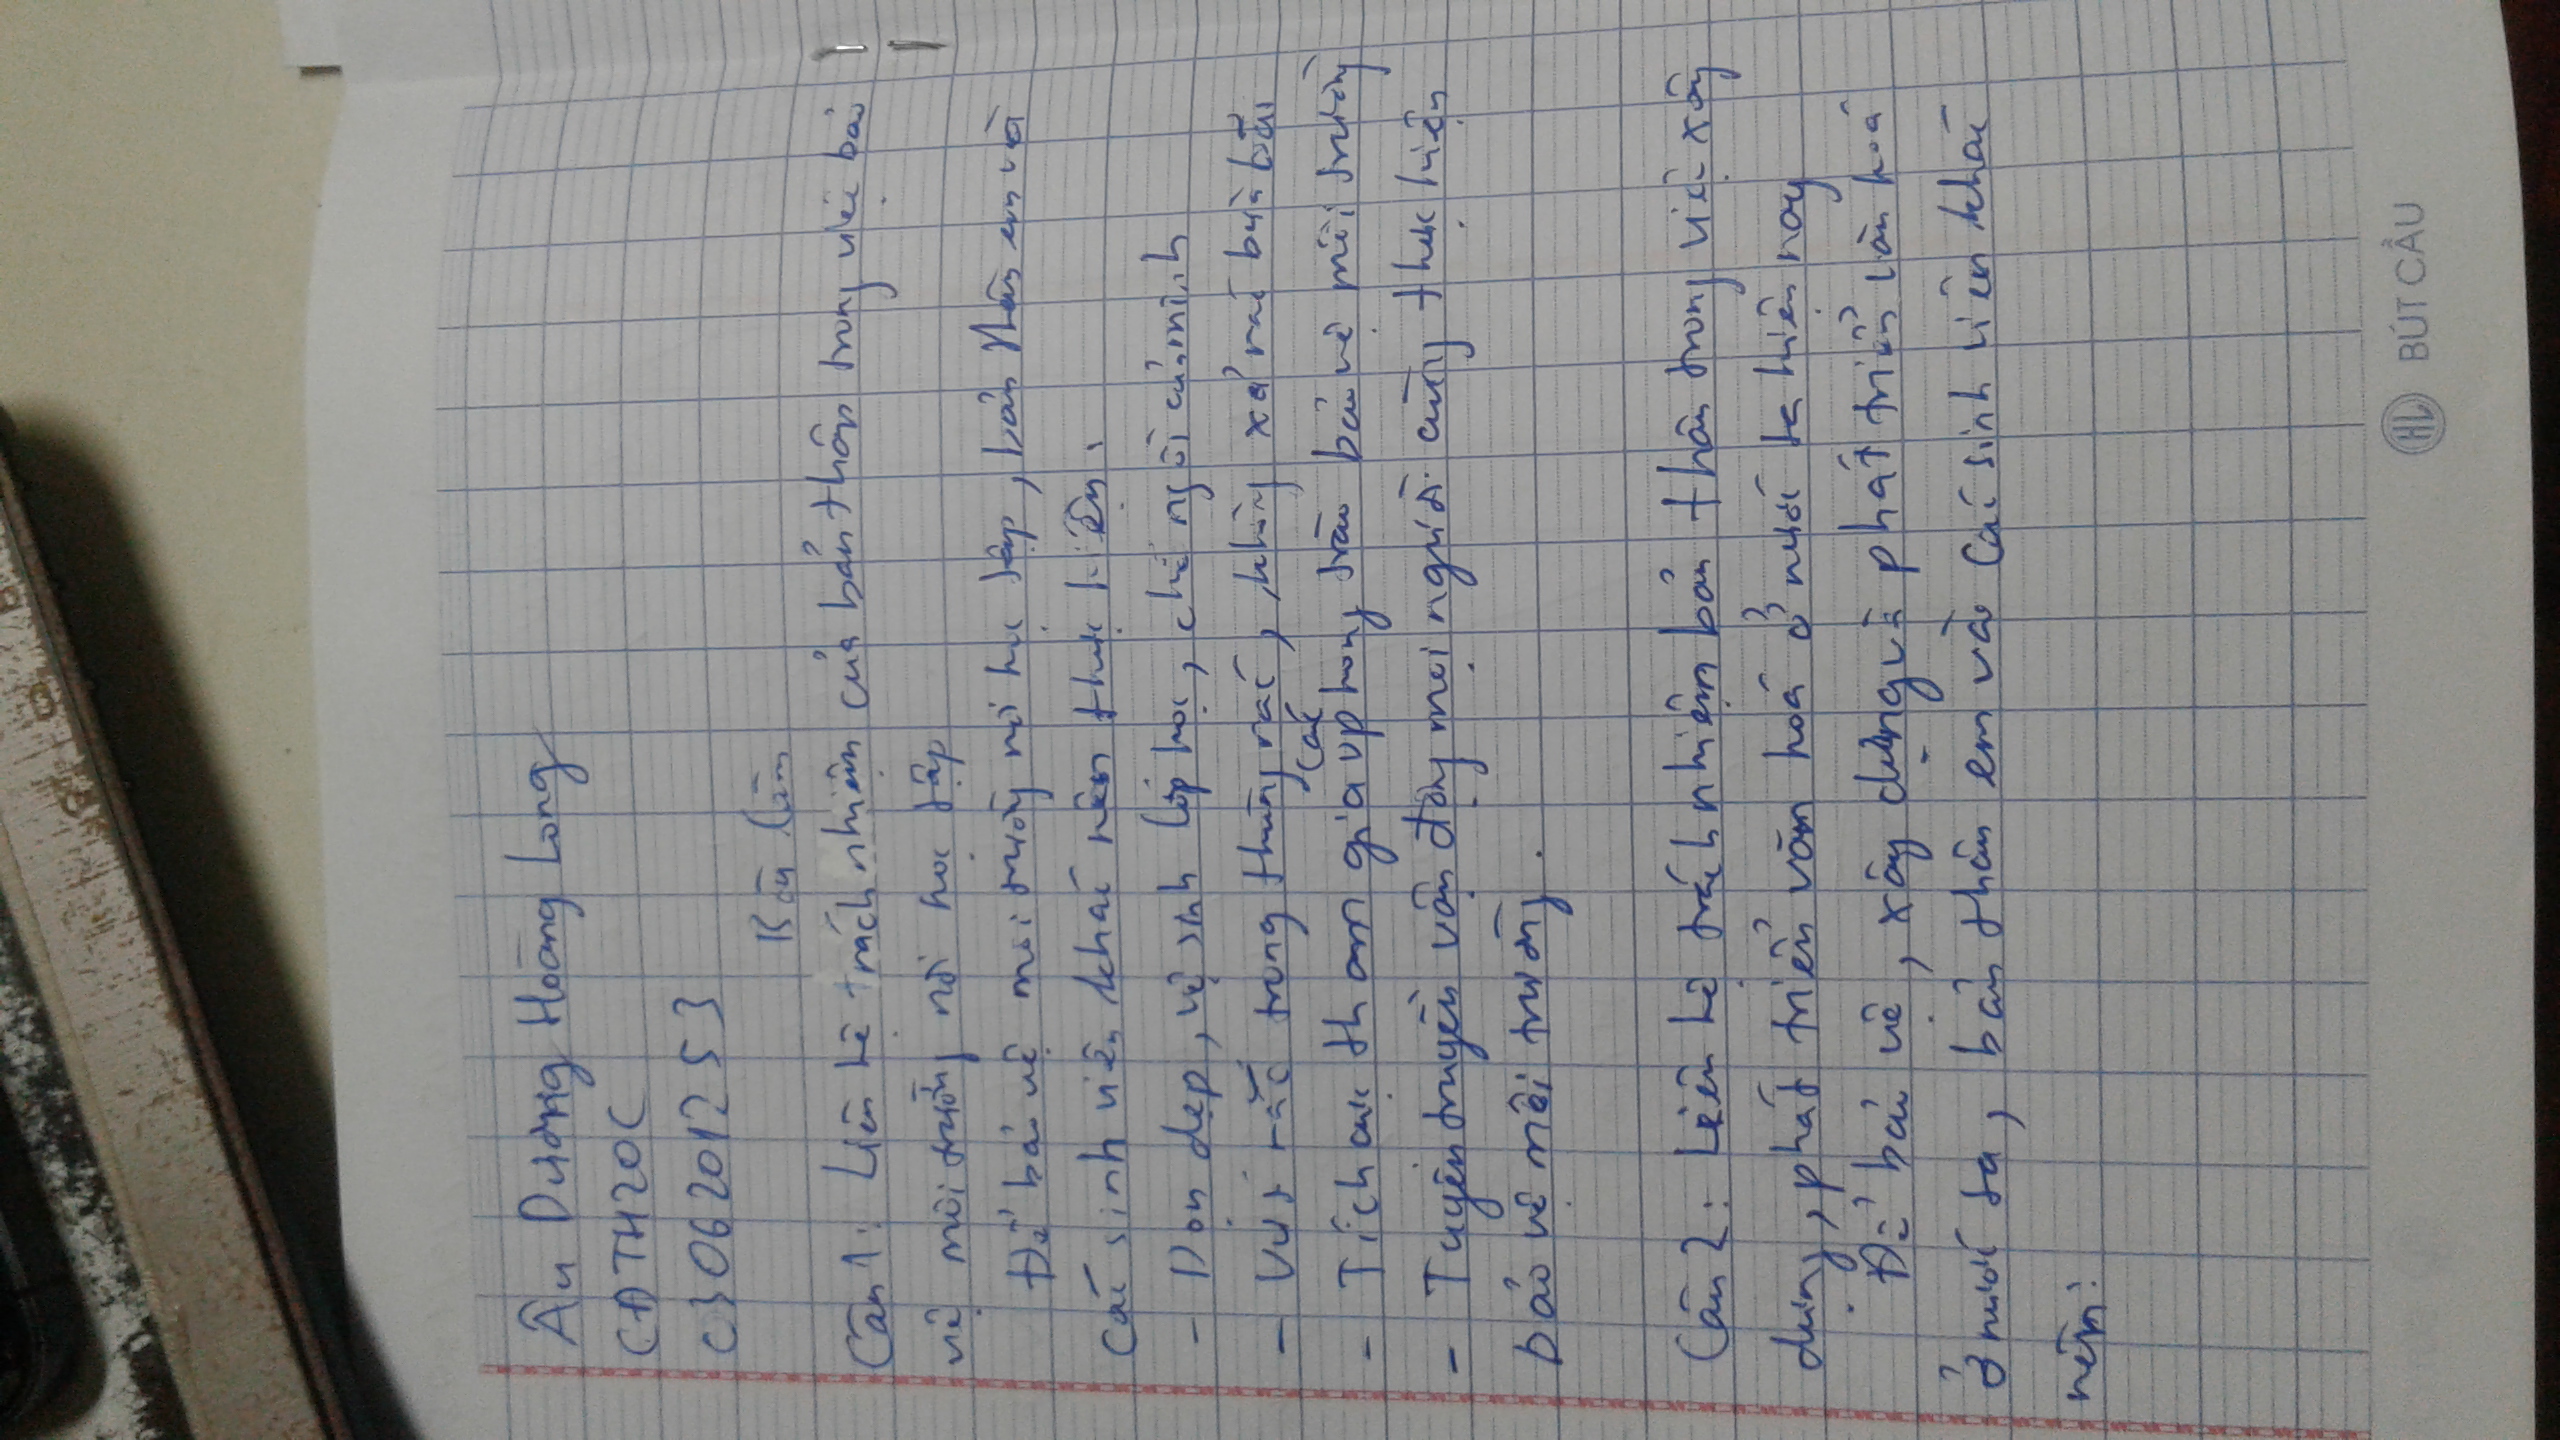 Âu Dương Hoàng Long
CĐTH20C
0306201253
Bài làm
Câu 1: Liên hệ trách nhiệm của bản thân trong việc bảo
vệ môi trường nơi học tập
Để bảo vệ môi trường nơi học tập, bản thân em và
các sinh viên khác nên thực hiện.
- Dọn dẹp, vệ sinh lớp học, chỗ ngồi của mình
- Vứt rắc trong thùng rác, không xả rác bừa bãi
các
- Tích cực tham gia phong trào bảo vệ môi trường
- Tuyên truyền vận động mọi người cùng thực hiện
bảo vệ môi trường.
Câu 2: Liên hệ trách nhiệm bản thân trong việc xây
dựng, phát triển văn hoá ở nước ta hiện nay
Để bảo vệ, xây dựng và phát triển văn hoá
ở nước ta, bản thân em và các sinh viên khác
nên:
HL BÚT CẦU